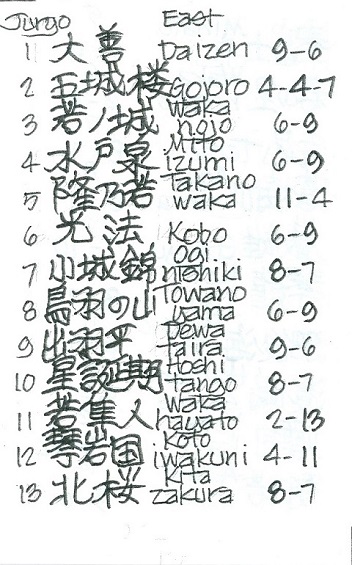 Juryo East
1 大善 Daizen 9-6
2 五城楼 Gojoro 4-4-7
3 若ノ城 Waka nojo 6-9
4 水戸泉 Mito izumi 6-9
5 隆乃若 Takano waka 11-4
6 光法 Kobo 6-9
7 小城錦 Ogi nishiki 8-7
8 鳥羽の山 Towano yama 6-9
9 出羽平 Dewa taira 9-6
10 星誕期 Hoshi tango 8-7
11 若隼人 Waka hayato 2-13
12 琴岩国 Koto iwakuni 4-11
13 北桜 Kita zakura 8-7